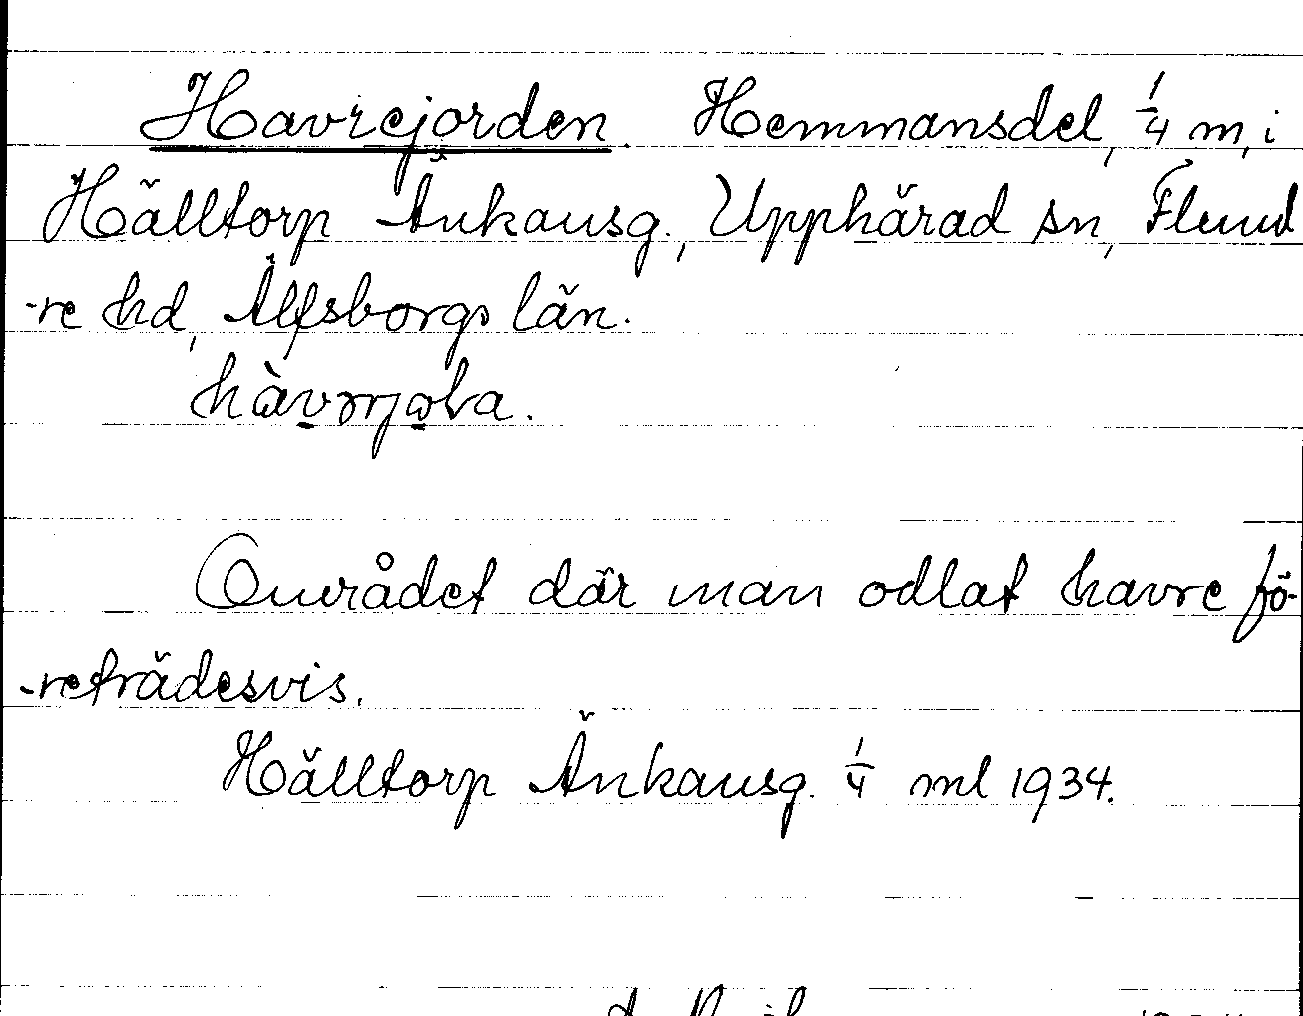 Havrejorden. Hemmansdel, 1/4 m, i
Hälltorp Änkausg., Upphärad sn, Flund
-re hd, Älfsborgs län.
Området där man odlat havre fö-
-reträdesvis.
Hälltorp Änkausg. 1/4 ml 1934.